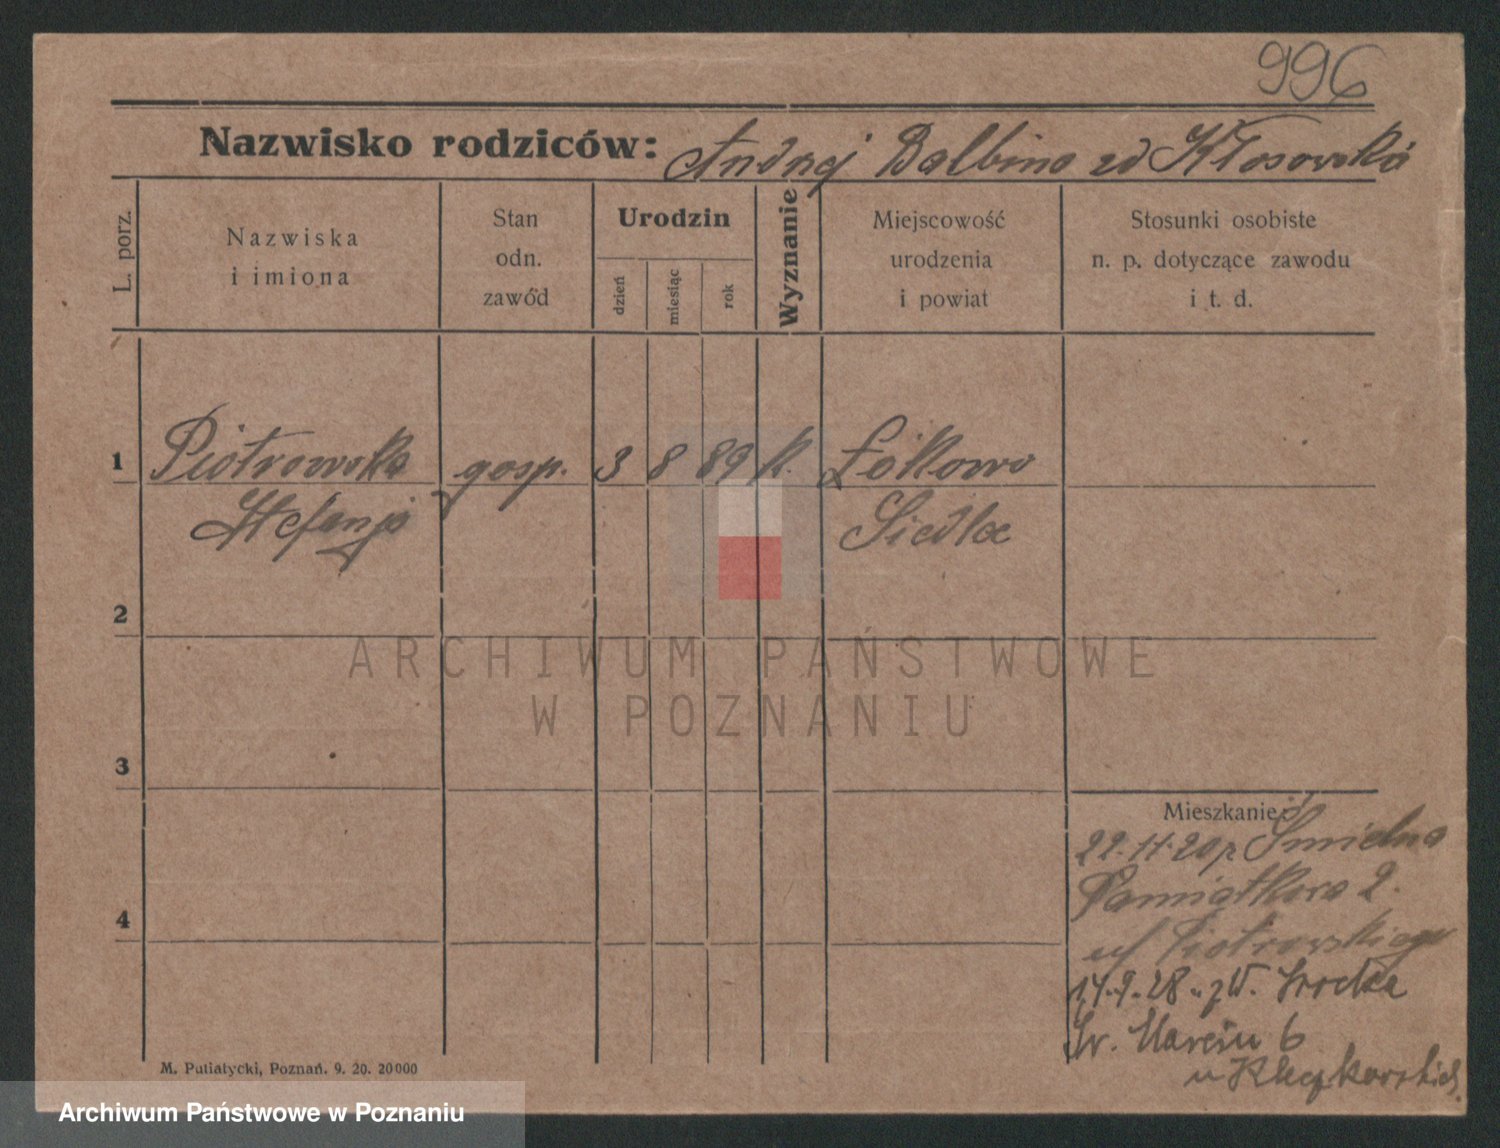 996
Nazwisko rodziców: Andrzej Balbina zd Kłosowska
L. porz.
Nazwiska
i imiona
Stan
odn.
zawód
Urodzin
dzień
miesiąc
rok
Wyznanie
Miejscowość
urodzenia
i powiat
Stosunki osobiste
n. p. dotyczące zawodu
i t. d.
1 Piotrowska gosp. 3 8 89 k.
Stefanja Siedlce
2
ARCHIWUM PAŃSTWOWE
W POZNANIU
3
Mieszkanie:
22.11.20 Śmielna
4
Pamiątkowa 2.
Piotrowskiego
14.9.28 z W. Środka
Św. Marcin 6
u
M. Putiatycki, Poznań. 9. 20. 20000
Archiwum Państwowe w Poznaniu